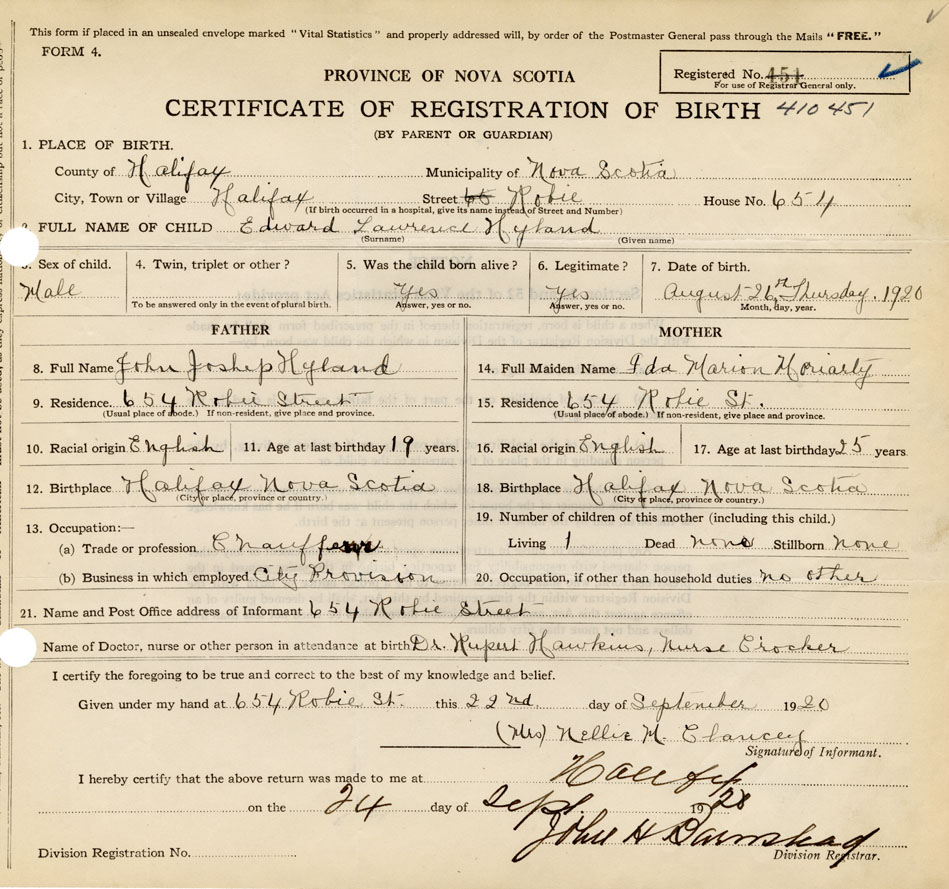 This form if placed in an unsealed envelope marked "Vital Statistics" and properly addressed will, by order of the Postmaster General pass through the Mails "FREE."
FORM 4.
PROVINCE OF NOVA SCOTIA
Registered No. 451
For use of Registrar General only.
CERTIFICATE OF REGISTRATION OF BIRTH 410451
(BY PARENT OR GUARDIAN)
1. PLACE OF BIRTH.
County of Halifax Municipality of Nova Scotia
City, Town or Village Halifax Street 65 Robie House No. 654
(If birth occurred in a hospital, give its name instead of Street and Number)
2. FULL NAME OF CHILD Edward Lawrence Hyland
(Surname) (Given name)
3. Sex of child. 4. Twin, triplet or other? 5. Was the child born alive? 6. Legitimate? 7. Date of birth.
Male Yes Yes August 26th Thursday. 1920
To be answered only in the event of plural birth. Answer, yes or no. Answer, yes or no. Month, day, year.
FATHER MOTHER
8. Full Name John Joshep Hyland 14. Full Maiden Name Ida Marion Moriarty
9. Residence. 654 Robie Street 15. Residence 654 Robie St.
(Usual place of abode.) If non-resident, give place and province. (Usual place of abode.) If non-resident, give place and province.
10. Racial origin English 11. Age at last birthday 19 years. 16. Racial origin English 17. Age at last birthday 25 years.
12. Birthplace Halifax Nova Scotia 18. Birthplace Halifax Nova Scotia
(City or place, province or country.) (City or place, province or country.)
13. Occupation:— 19. Number of children of this mother (including this child.)
(a) Trade or profession Chauffeur Living 1 Dead none Stillborn none
(b) Business in which employed City Provision 20. Occupation, if other than household duties no other
21. Name and Post Office address of Informant 654 Robie Street
Name of Doctor, nurse or other person in attendance at birth Dr. Rupert Hawkins, Nurse Crocker
I certify the foregoing to be true and correct to the best of my knowledge and belief.
Given under my hand at 654 Robie St. this 22nd. day of September 1920
(Mrs) Nellie M. Clancey
Signature of Informant.
I hereby certify that the above return was made to me at Halifax
on the 24 day of Sept 19
John H Barnstead
Division Registration No. Division Registrar.